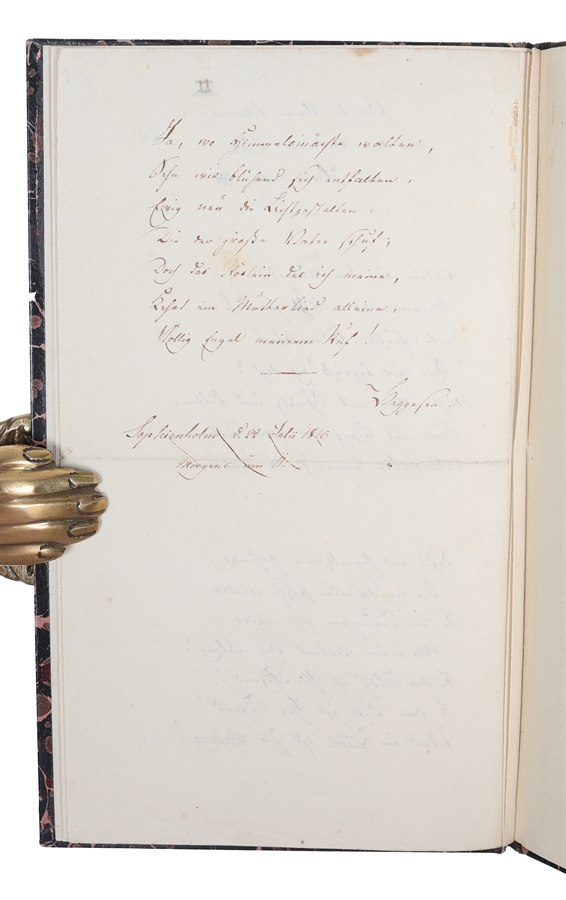 II
Ja, wo Himmelsmächte walten,
Sehn wir blühend sich entfalten,
Ewig neu die Lichtgestalten,
Die der große Vater schuf;
Doch das Röslein das ich meine,
Kehrt im Mutterlied alleine,
Völlig Engel meinem Ruf!
Baggesen
Sophienholm d. 22 Julii 1816
Morgens um